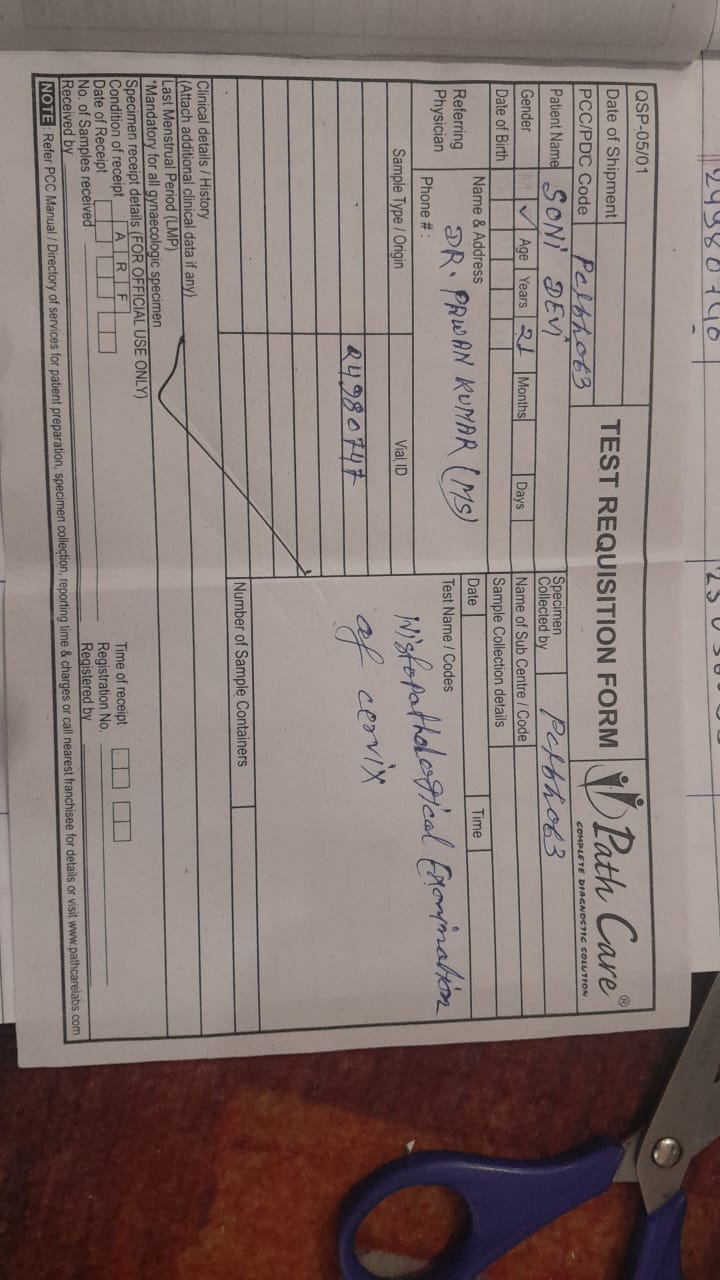 24980746
QSP-05/01
TEST REQUISITION FORM
Path Care®
COMPLETE DIAGNOSTIC SOLUTION
Date of Shipment
PCC/PDC Code
Patient Name SONI DEVI
Specimen Collected by
Gender M ✓ Age Years 21 Months Days
Name of Sub Centre / Code
Date of Birth
Sample Collection details
Referring Physician
Name & Address DR. PAWAN KUMAR (MS)
Phone # :
Date Time
Sample Type / Origin Vial ID
Test Name / Codes
Histopathological Examination
of cervix
24980747
Number of Sample Containers
Clinical details / History
(Attach additional clinical data if any)
Last Menstrual Period (LMP)
*Mandatory for all gynaecologic specimen
Specimen receipt details (FOR OFFICIAL USE ONLY)
Condition of receipt A R F
Time of receipt
Date of Receipt
Registration No.
No. of Samples received
Registered by
Received by
NOTE : Refer PCC Manual / Directory of services for patient preparation, specimen collection, reporting time & charges or call nearest franchisee for details or visit www.pathcarelabs.com